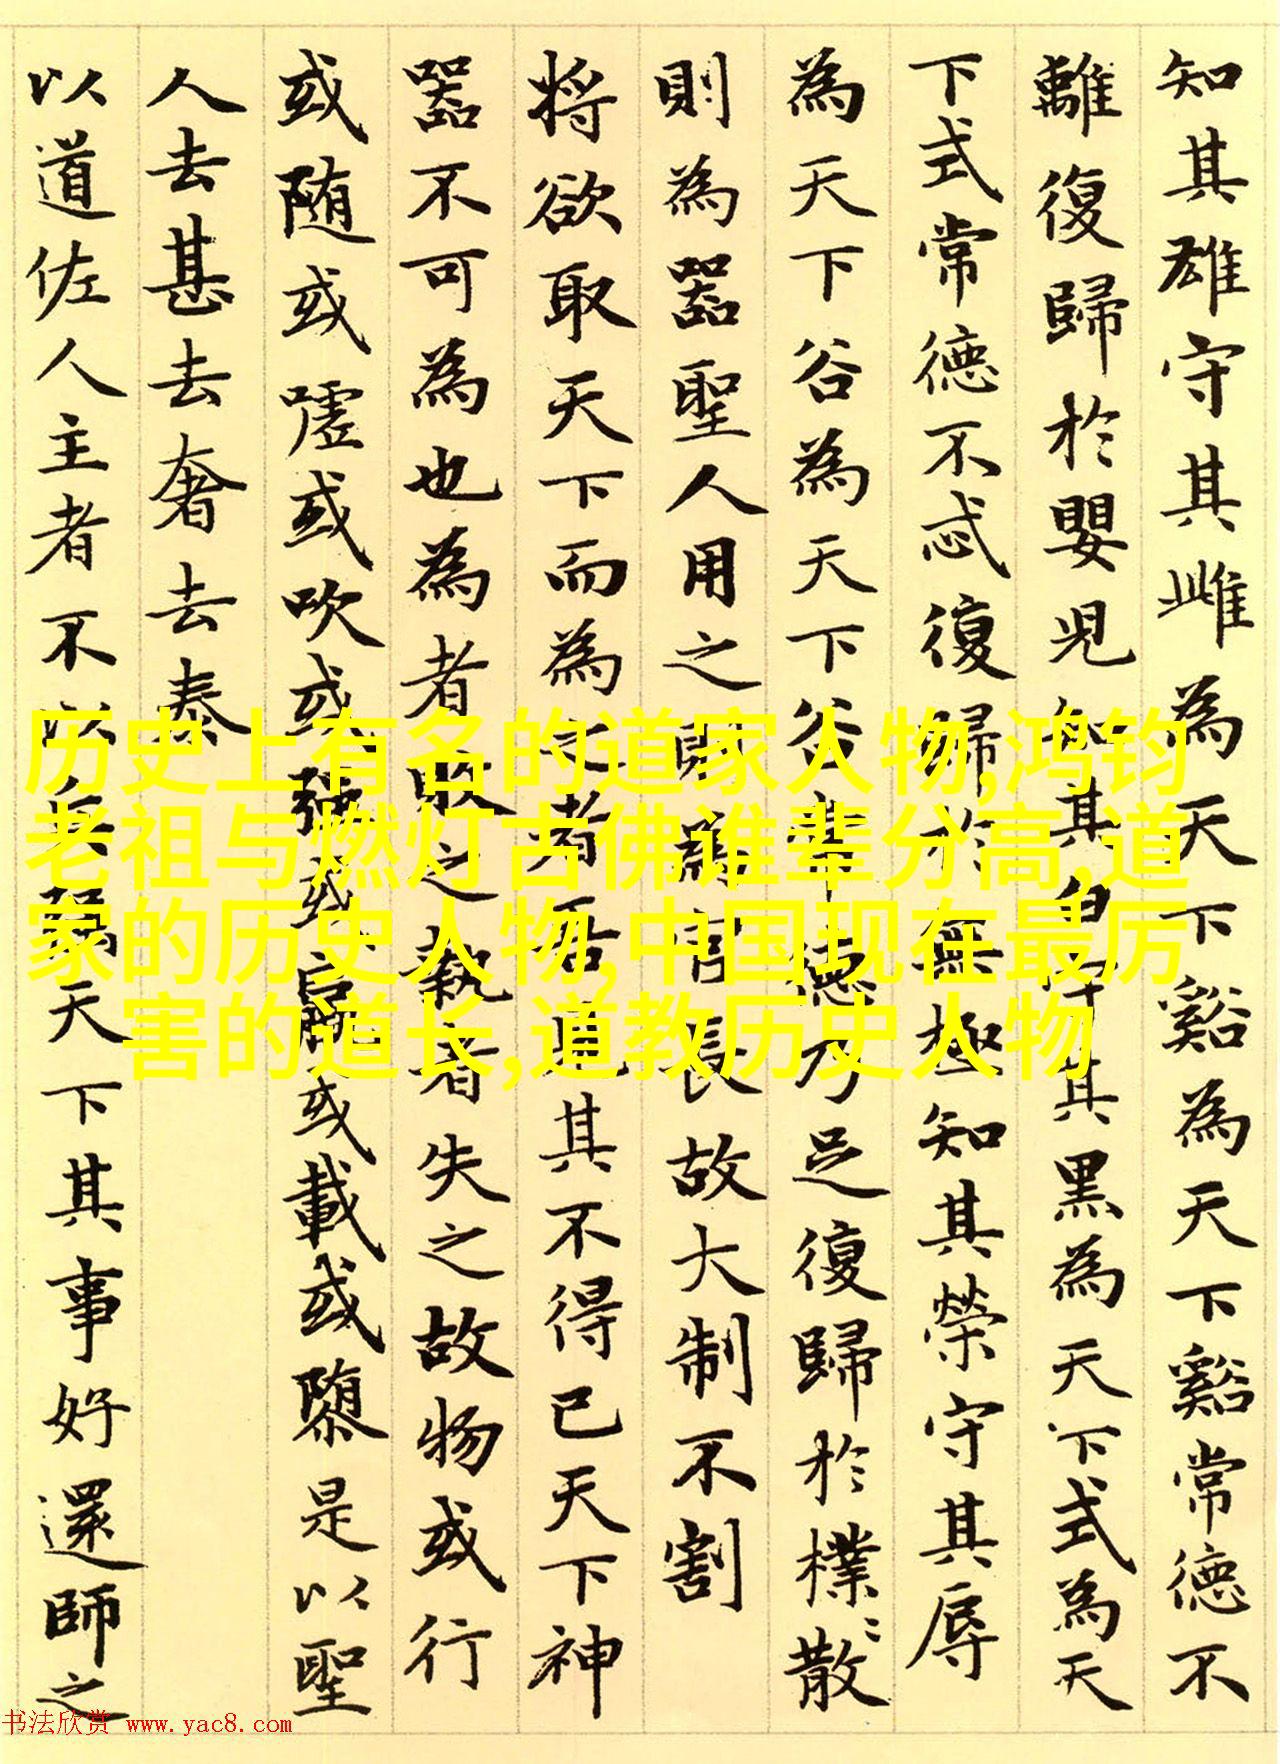 知其雄守其雌為天下谿為天下谿常德不
離復歸於嬰兒知其白守其黑為天下式為天
下式常德不忒復歸於無極知其榮守其辱
為天下谷為天下谷常德乃足復歸於樸〻散
則為器聖人用之則為官長故大制不割
将欲取天下而為之者吾見其不得已天下神
器不可為也為者敗之執者失之故物或行
或随或噓或吹或強或羸或載或隳是以聖
人去甚去奢去泰
以道佐人主者不以兵强天下其事好還師之
历史上有名的道家人物,鸿钧
老祖与燃灯古佛谁辈分高,道
家的历史人物,中国现在最厉
害的道长,道教历史人物
书法欣赏 www.yac8.com